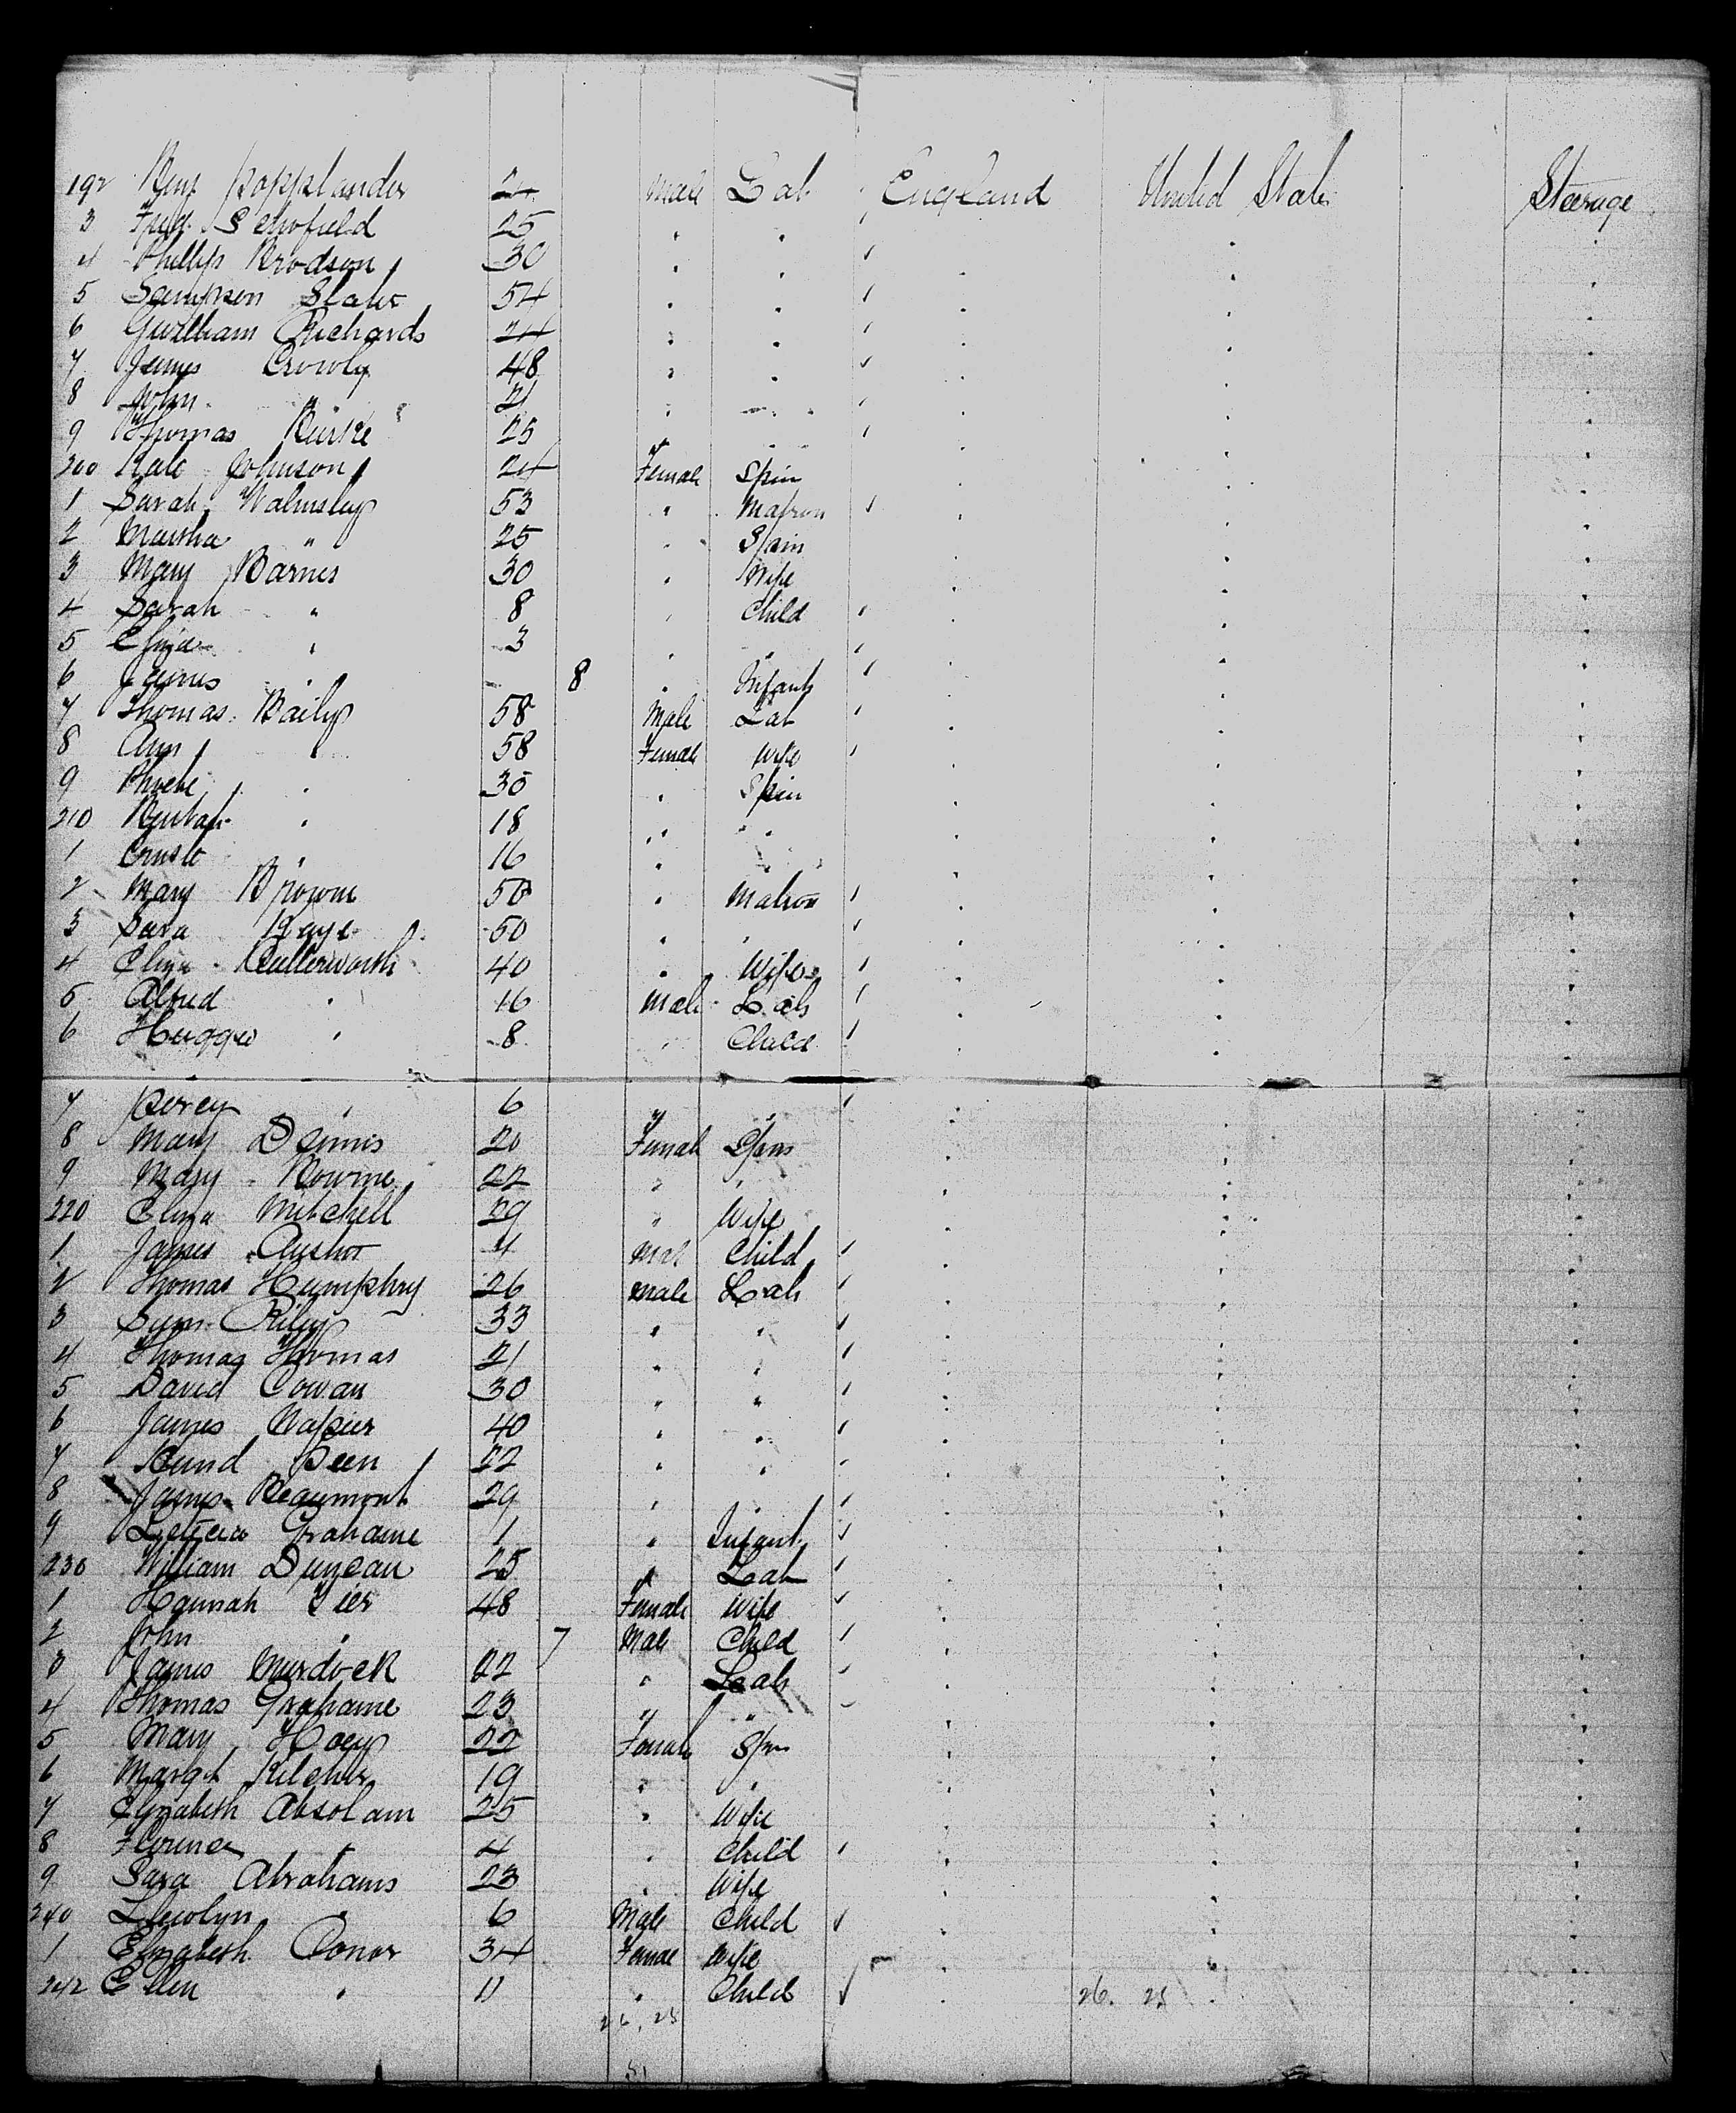 192 Benj Popplander 24 Male Lab England United States Steerage
3 Fred. Schofield 25 " "
4 Phillip Brodson 30 " "
5 Sampson Slater 54 " "
6 Gwilliam Richards 24 " "
7 James Crowly 48 " "
8 John " 21 " "
9 Thomas Burke 25 " "
200 Kate Johnson 24 Female Spin
1 Sarah Walmsley 53 " Matron
2 Martha " 25 " Spin
3 Mary Barnes 30 " Wife
4 Sarah " 8 " Child
5 Eliza " 3 " "
6 James " 8 " Infant
7 Thomas Baily 58 Male Lab
8 Ann " 58 Female Wife
9 Phoebe " 30 " Spin
210 18 " "
1 " 16 " "
2 Mary Browne 50 " Matron
3 Sara Kaye 50 " "
4 Eliza Butterworth 40 " Wife
5 Alfred " 16 Male Lab
6 " 8 " Child
7 Percy " 6 " "
8 Mary Dennis 20 Female Spin
9 Mary Bowrne 22 " "
220 Eliza Mitchell 29 " Wife
1 James 4 Male Child
2 Thomas Humphry 26 Male Lab
3 Sam Riley 33 " "
4 Thomas Thomas 21 " "
5 David Cowan 30 " "
6 James Napier 40 " "
7 22 " "
8 James Beaumont 29 " "
9 Leticia Grahame 1 " Infant
230 William Duncan 25 " Lab
1 Hannah Tier 48 Female Wife
2 John " 7 Male Child
3 James Murdock 22 " Lab
4 Thomas Grahame 23 " "
5 Mary Hoey 22 Female Spin
6 Margt Kilcher 19 " "
7 Elizabeth Absolam 25 " Wife
8 Florence " 4 " Child
9 Sara Abrahams 23 " Wife
240 Llewolyn " 6 Male Child
1 Elizabeth Conor 34 Female Wife
242 Ellen " 11 " Child 26. 25
26, 25
51